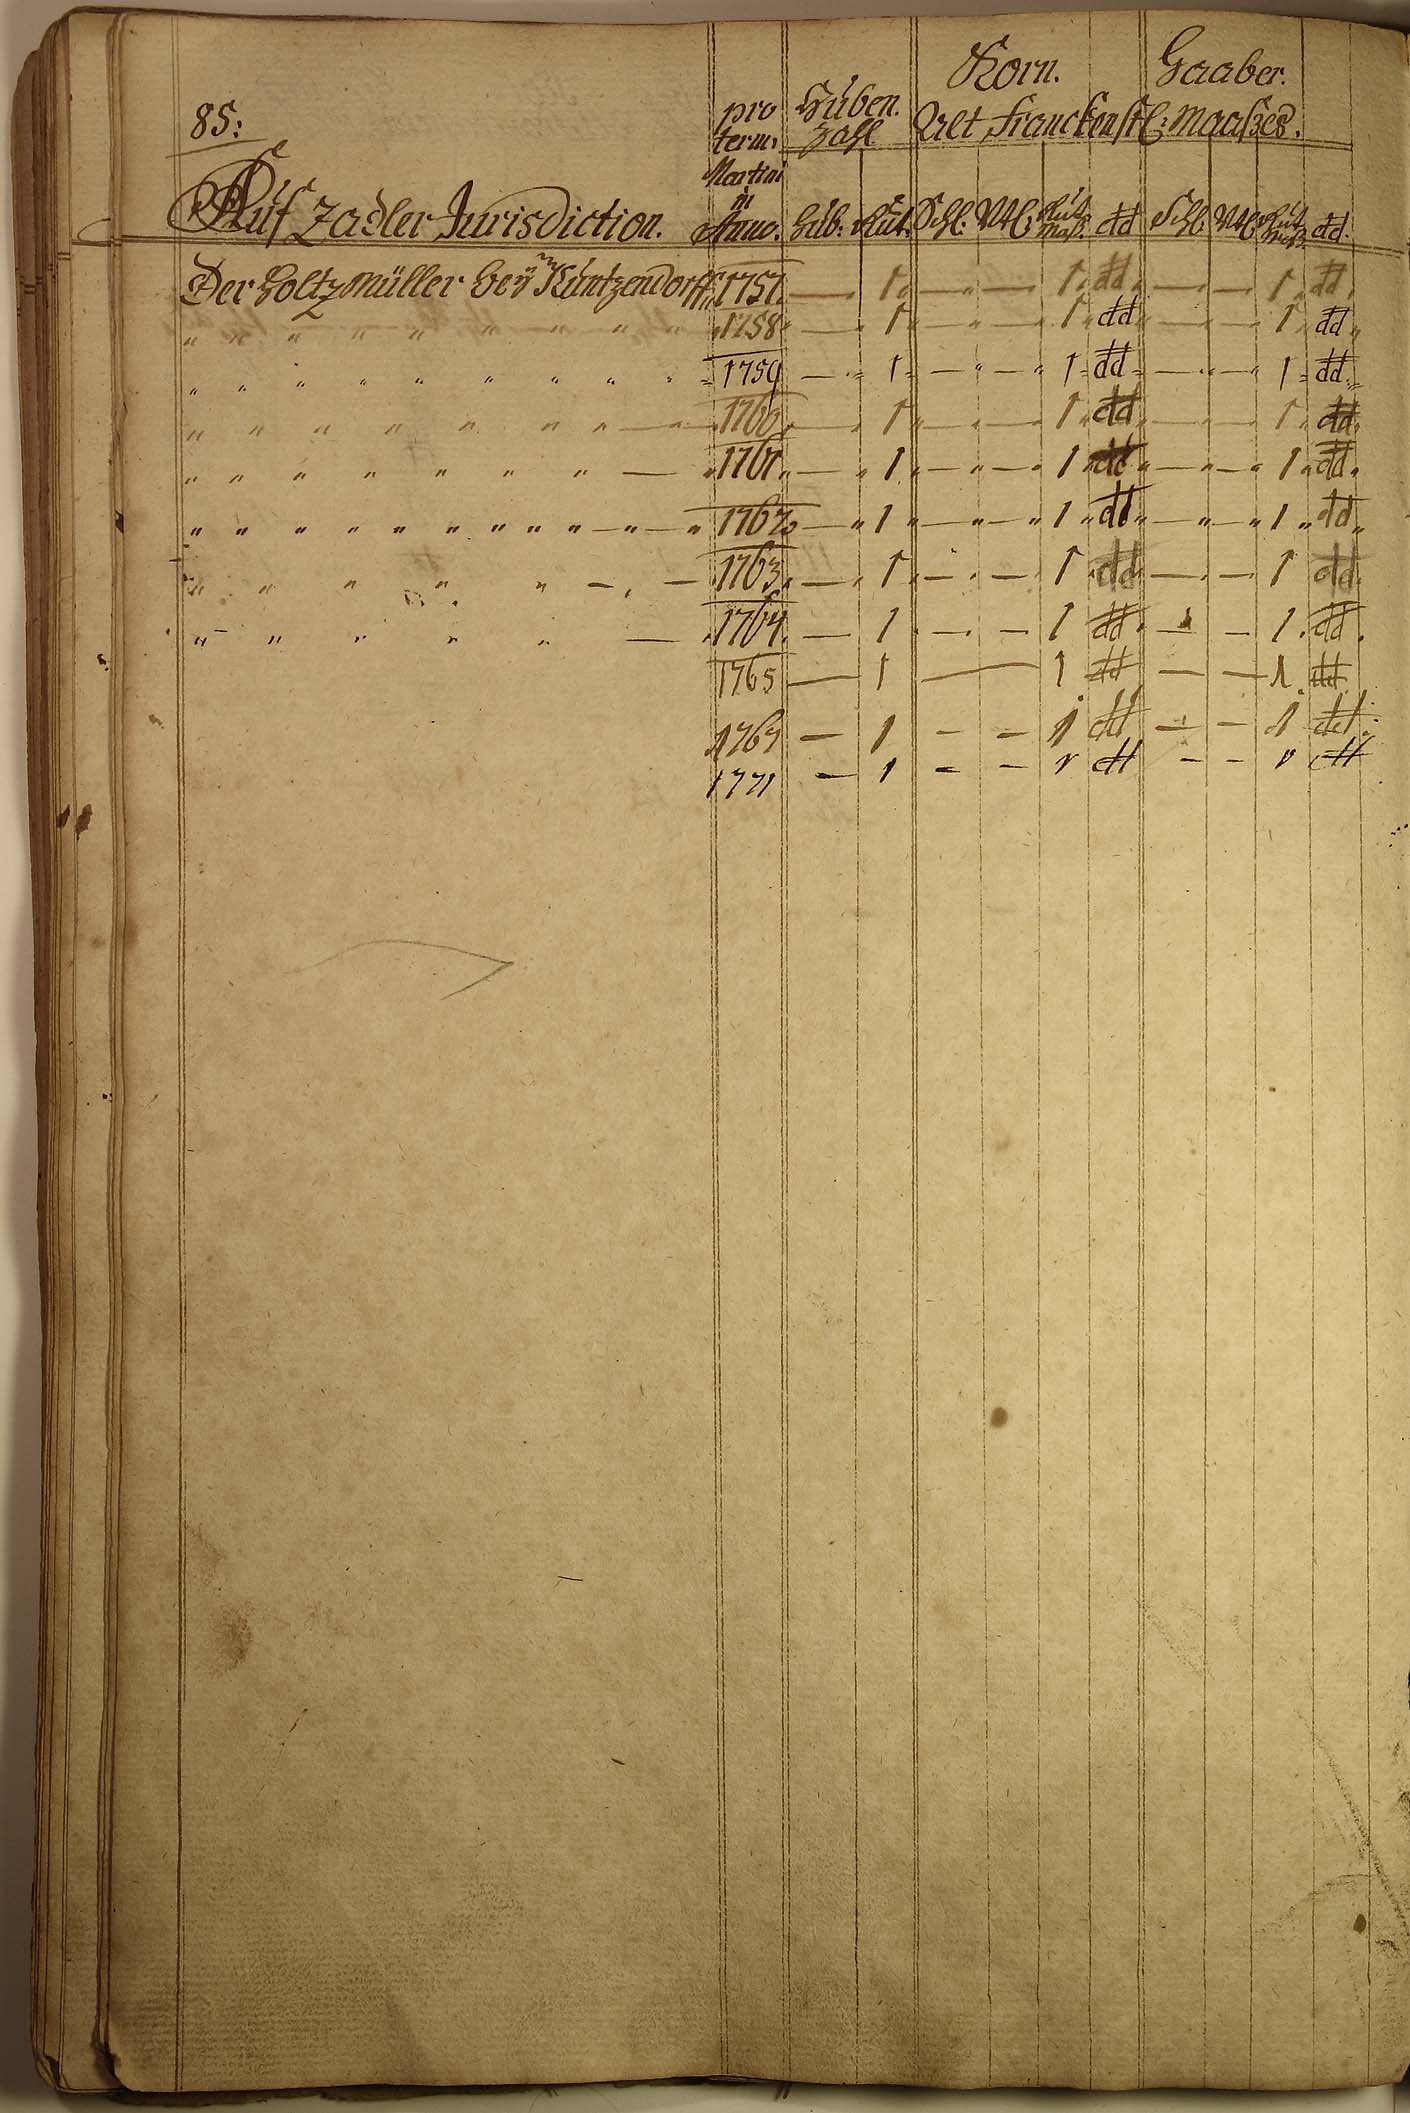 Korn. Gaaber.
85: pro Huben. Alt Franckenstl: Maaßes.
term: Zahl
Martini
in
Auf Zadler Jurisdiction. Anno. Hub: Rut: Schl: Vtl: Rut Maß. dd Schl: Vtl: Rut Maß. dd:
Der Holtz Müller beÿ Kuntzendorff 1757. — 1. — " — 1. dd. — — 1. dd.
" " " " " " " " " 1758 — " 1 " — " — " 1 " dd " — " — " 1 " dd "
" " " " " " " " " = 1759 — " = 1 = — " — " 1 = dd = — " — " 1 = dd =
" " " " " " " — " — 1760 — 1 " — " — 1 " dd — " — 1 " dd.
" " " " " " " — " 1761 " — " 1 " — " — 1 " dd " — " — " 1 " dd "
" " " " " " " " " " — " — " 1762 — " 1 " — " — " 1 " dd " — " — " 1 " dd "
" " " " " — , — 1763. — . 1 . — . — 1 . dd — . — 1 dd.
" " " " " — 1764. — 1 . — . — 1 dd . — — 1 . dd .
1765 — 1 — 1 dd — — 1. dd
1767 — 1 — — 1 dd — — 1 dd.
1771 — 1 — — 1 dd — — 1 dd